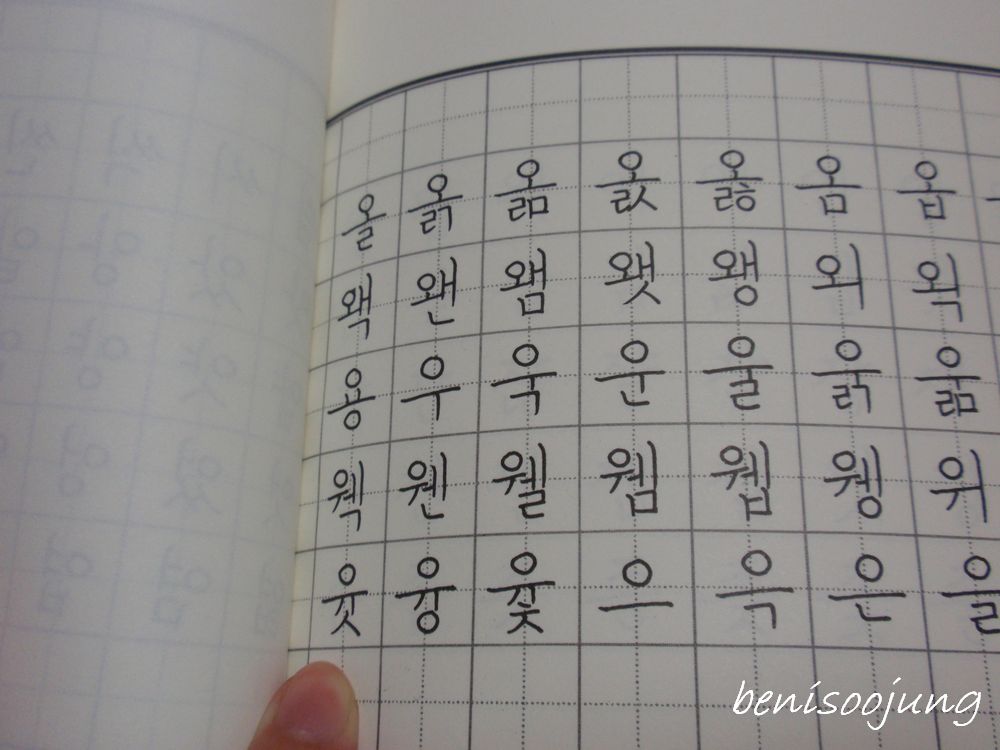 올 옭 옮 옰 옳 옴 옵
왝 왠 왬 왯 왱 외 왹
용 우 욱 운 울 욹 욺
웩 웬 웰 웸 웹 웽 위
윳 융 윷 으 윽 은 을
benisoojung